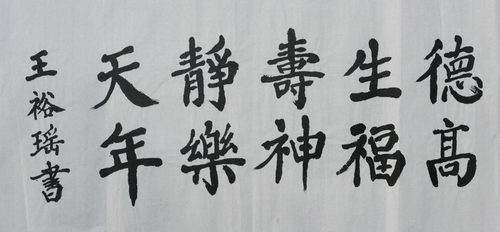 德高
生福
壽神
靜樂
天年
王裕瑶書